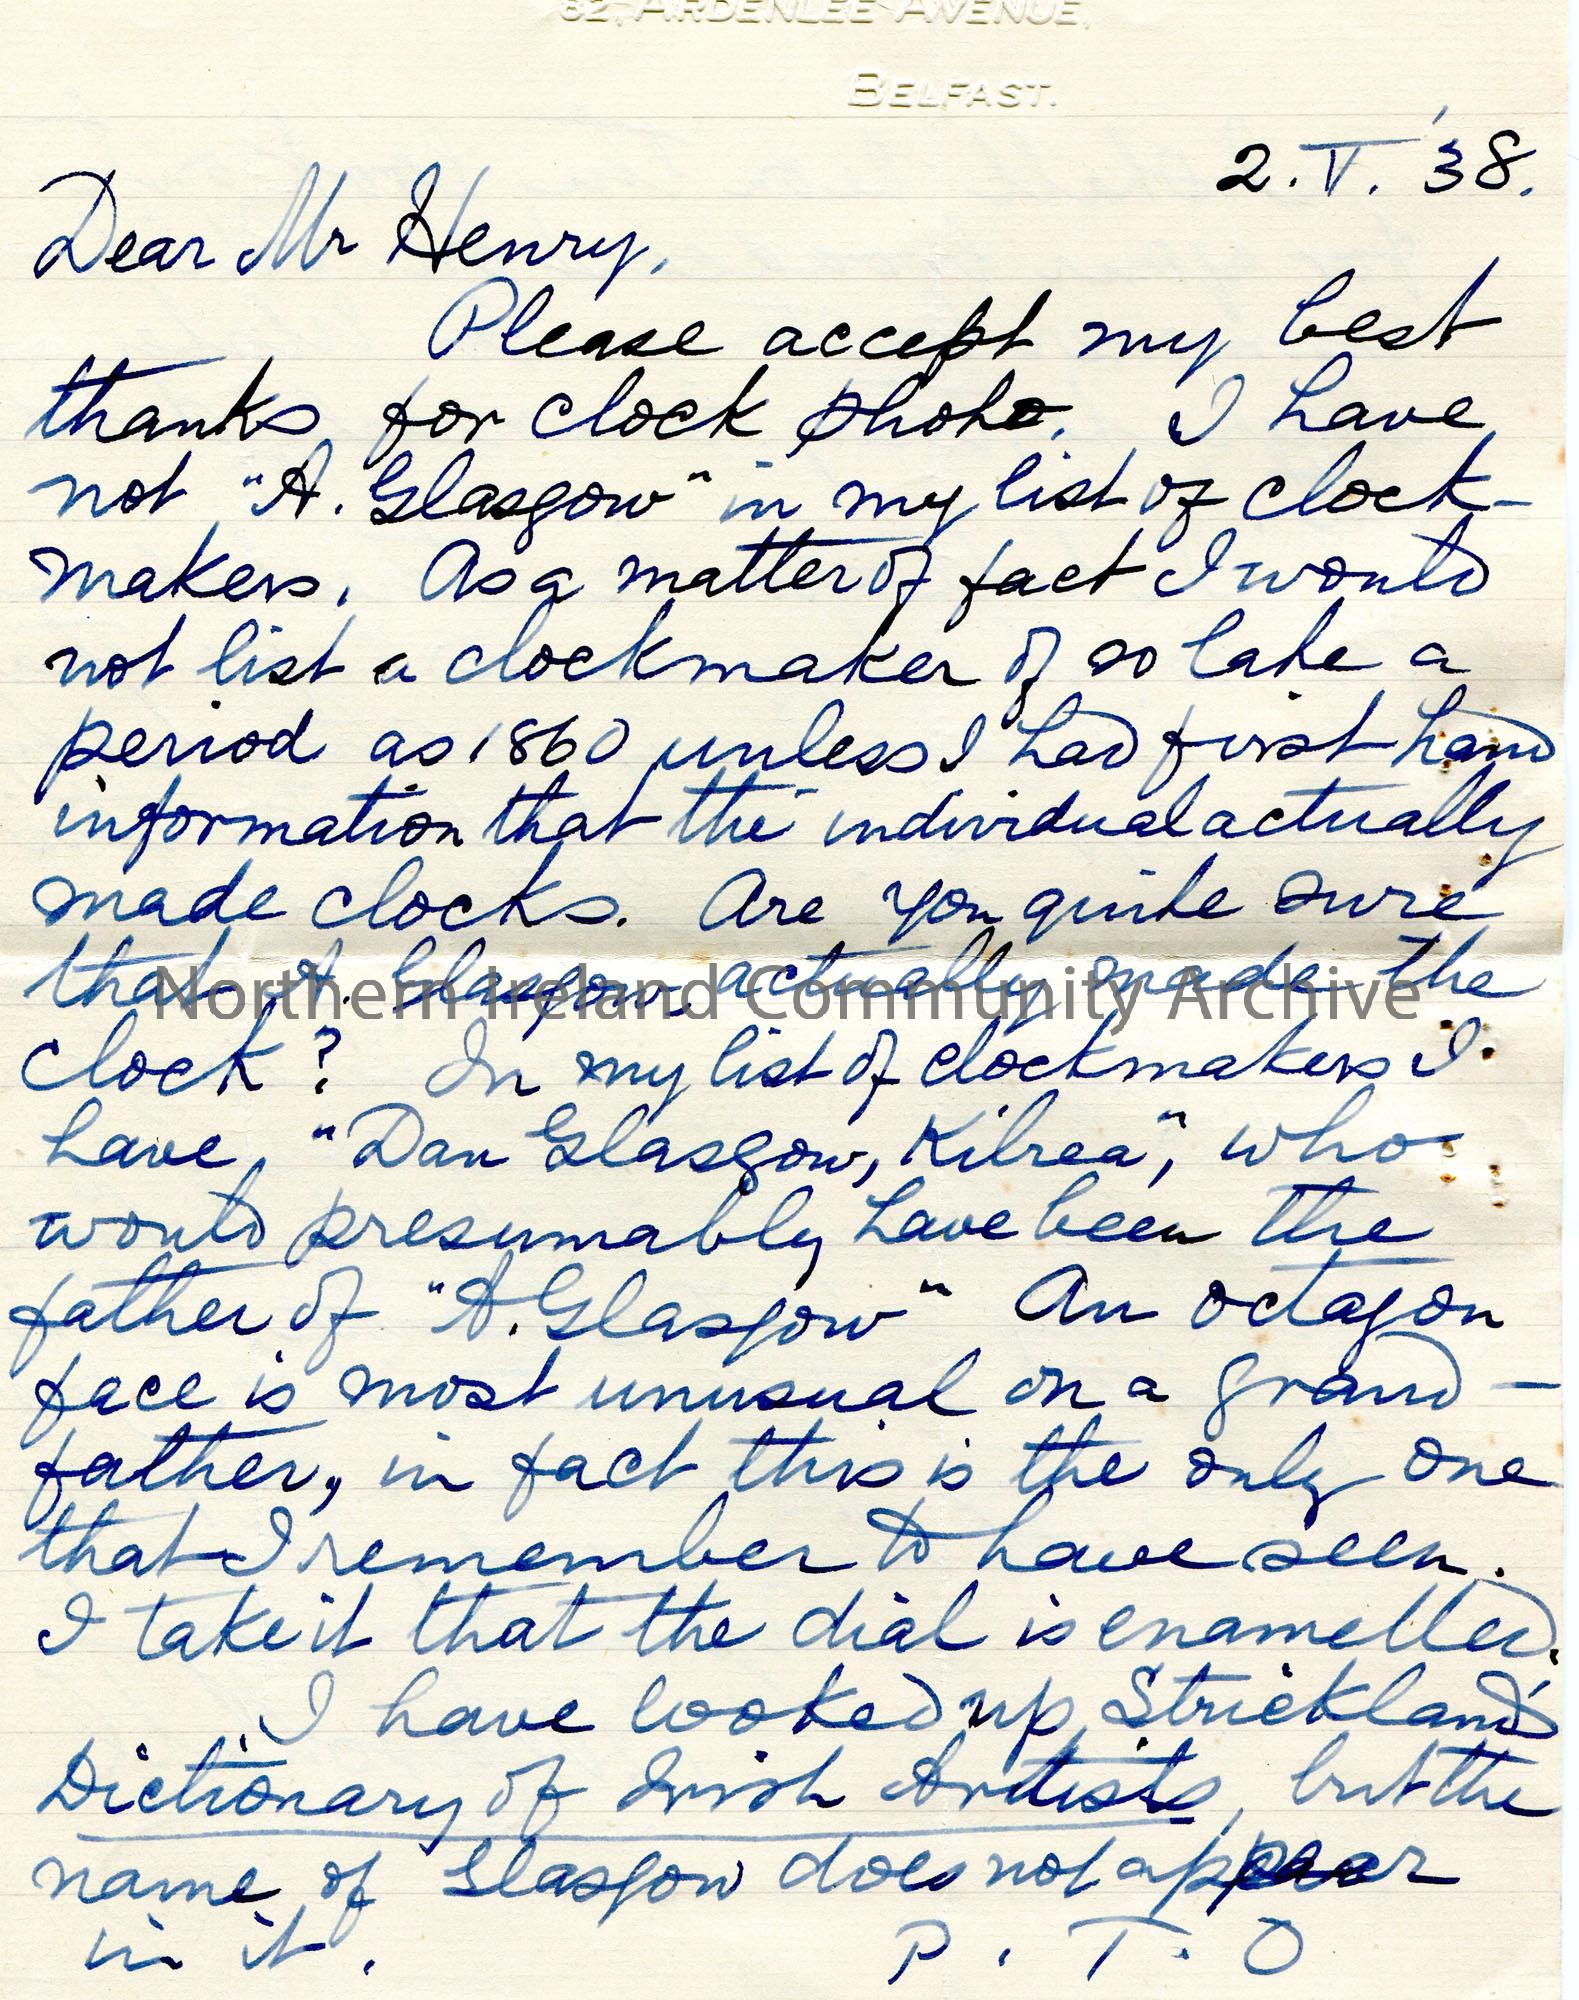 82, ARDENLEE AVENUE,
BELFAST.
2. V. '38.
Dear Mr Henry,
Please accept my best
thanks for clock photo. I have
not "A. Glasgow" in my list of clock-
makers. As a matter of fact I would
not list a clockmaker of so late a
period as 1860 unless I had first hand
information that the individual actually
made clocks. Are you quite sure
that A. Glasgow actually made the
clock? In my list of clockmakers I
have, "Dan Glasgow, Kilrea", who
would presumably have been the
father of "A. Glasgow" An octagon
face is most unusual on a grand-
father, in fact this is the only one
that I remember to have seen.
I take it that the dial is enamelled.
I have looked up Strickland's
Dictionary of Irish Artists, but the
name of Glasgow does not appear
in it. P. T. O
Northern Ireland Community Archive